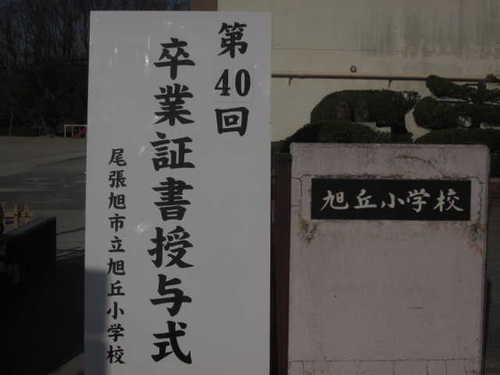 第40回
卒業証書授与式
尾張旭市立旭丘小学校
旭丘小学校